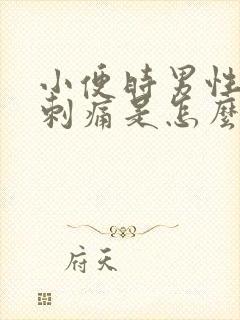 小便時男性
刺痛是怎麼
府天